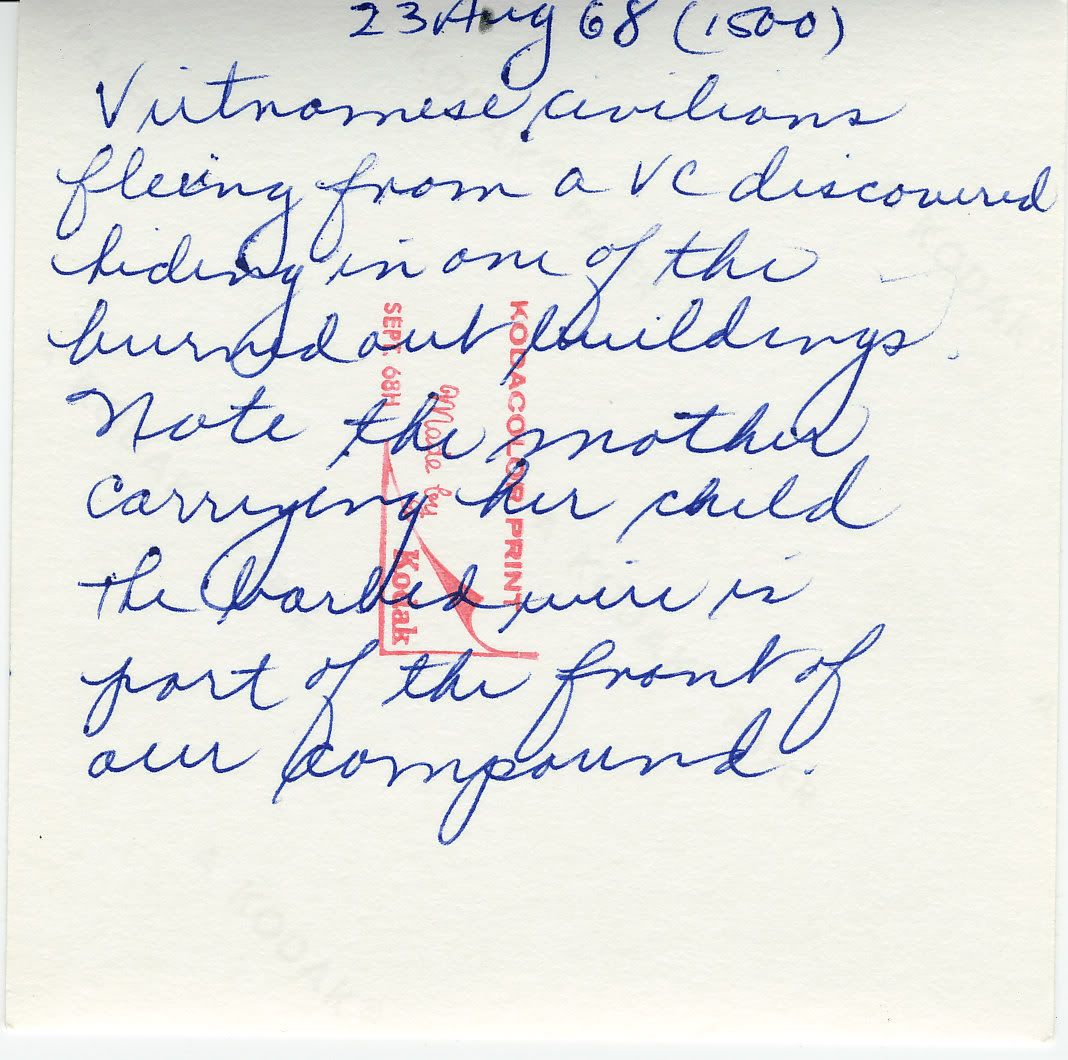 23 Aug 68 (1500)
Vietnamese civilians
fleeing from a VC discovered
hiding in one of the
burned out buildings.
Note the mother
carrying her child
the barbed wire is
part of the front of
our compound.
KODACOLOR PRINT
Made by
Kodak
SEPT. 68H